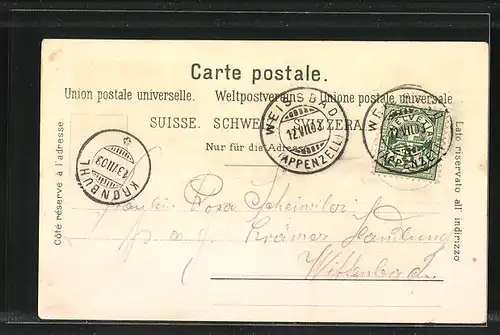 Carte postale.
Union postale universelle. Weltpostverein. Unione postale universale
SUISSE. SCHWEIZ. SVIZZERA.
Nur für die Adresse
Côté réservé à l'adresse
Lato riservato all indirizzo
WEISSBAD
12.VII.03
(APPENZELL)
WEISSBAD
12.VII.03
(APPENZELL)
KRONBÜHL
13.VII.03
Fräulein Rosa Scheiwiler
p. a. g. Krämer Handlung
Wittenbach.